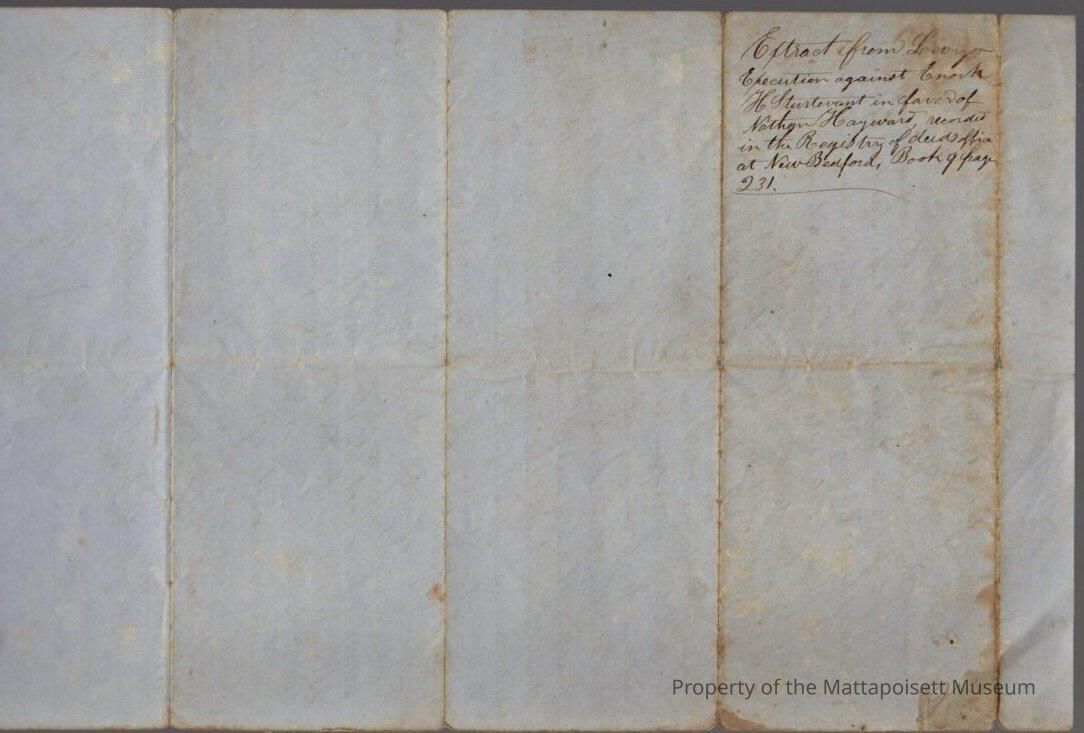 Extract from Levy on
Execution against Enoch
H Sturtevant in favor of
Nathan Hayward, recorded
in the Registry of deeds office
at New Bedford, Book 9 page
231.
Property of the Mattapoisett Museum